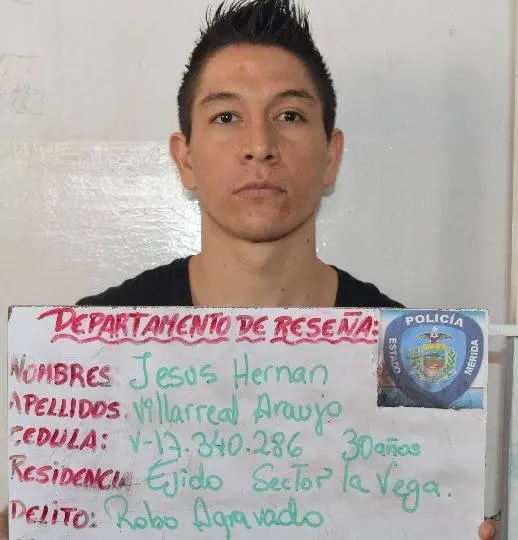 DEPARTAMENTO DE RESEÑA:
POLICÍA
ESTADO
MÉRIDA
NOMBRES: Jesus Hernan
APELLIDOS: Villarreal Araujo
CEDULA: V-17.340.286 30 años
RESIDENCIA Ejido Sector la Vega.
DELITO: Robo Agravado